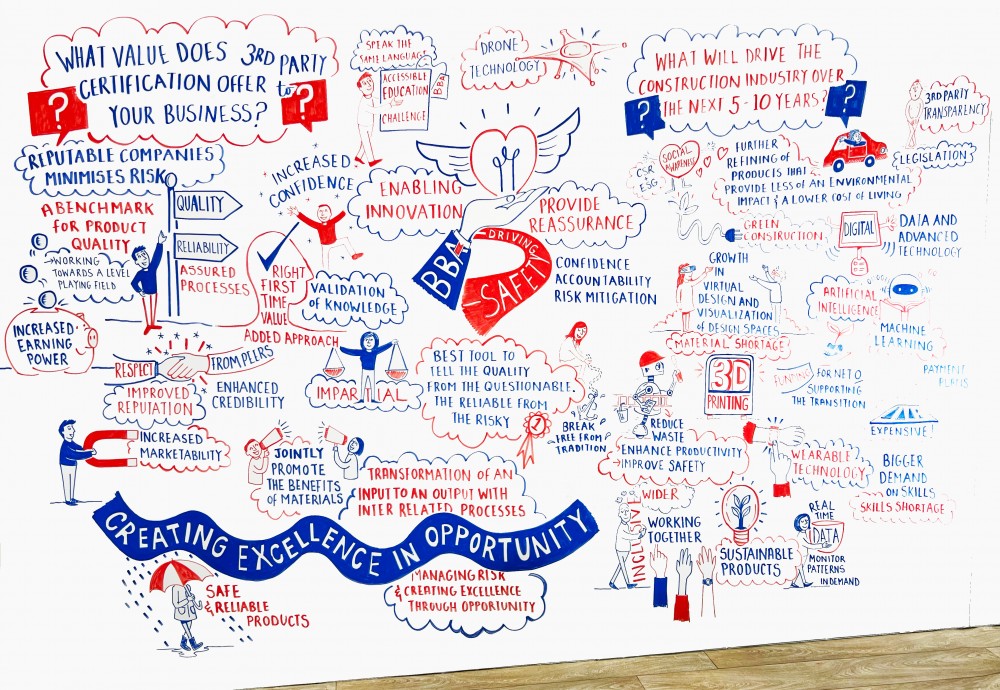 WHAT VALUE DOES 3RD PARTY
CERTIFICATION OFFER to
YOUR BUSINESS?
?
?
REPUTABLE COMPANIES
MINIMISES RISK
A BENCHMARK
FOR PRODUCT
QUALITY
→WORKING
TOWARDS A LEVEL
PLAYING FIELD
QUALITY
RELIABILITY
ASSURED
PROCESSES
INCREASED
EARNING
POWER
INCREASED
CONFIDENCE
RIGHT
FIRST
TIME
VALUE
ADDED APPROACH
VALIDATION
OF KNOWLEDGE
RESPECT
FROM PEERS
IMPROVED
REPUTATION
ENHANCED
CREDIBILITY
IMPARTIAL
INCREASED
MARKETABILITY
JOINTLY
PROMOTE
THE BENEFITS
OF MATERIALS
SPEAK THE
SAME LANGUAGE
ACCESSIBLE
EDUCATION
CHALLENGE
BBA
DRONE
TECHNOLOGY
ENABLING
INNOVATION
PROVIDE
REASSURANCE
BBA
DRIVING
SAFETY
CONFIDENCE
ACCOUNTABILITY
RISK MITIGATION
BEST TOOL TO
TELL THE QUALITY
FROM THE QUESTIONABLE,
THE RELIABLE FROM
THE RISKY
1
BREAK
FREE FROM
TRADITION
TRANSFORMATION OF AN
INPUT TO AN OUTPUT WITH
INTER RELATED PROCESSES
CREATING EXCELLENCE IN OPPORTUNITY
SAFE
& RELIABLE
PRODUCTS
MANAGING RISK
& CREATING EXCELLENCE
THROUGH OPPORTUNITY
WHAT WILL DRIVE THE
CONSTRUCTION INDUSTRY OVER
THE NEXT 5-10 YEARS?
?
?
3RD PARTY
TRANSPARENCY
LEGISLATION
CSR
ESG
SOCIAL
AWARENESS
FURTHER
REFINING OF
PRODUCTS THAT
PROVIDE LESS OF AN ENVIRONMENTAL
IMPACT & A LOWER COST OF LIVING
GREEN
CONSTRUCTION
DIGITAL
DATA AND
ADVANCED
TECHNOLOGY
GROWTH
IN
VIRTUAL
DESIGN AND
VISUALIZATION
OF DESIGN SPACES
MATERIAL SHORTAGE
ARTIFICIAL
INTELLIGENCE
MACHINE
LEARNING
3D
PRINTING
FUNDING
FOR NET 0
SUPPORTING
THE TRANSITION
PAYMENT
PLANS
EXPENSIVE!
REDUCE
WASTE
ENHANCE PRODUCTIVITY
→IMPROVE SAFETY
WEARABLE
TECHNOLOGY
BIGGER
DEMAND
ON SKILLS
SKILLS SHORTAGE
WIDER
INCLUSIVE
WORKING
TOGETHER
SUSTAINABLE
PRODUCTS
REAL
TIME
DATA
MONITOR
PATTERNS
IN DEMAND